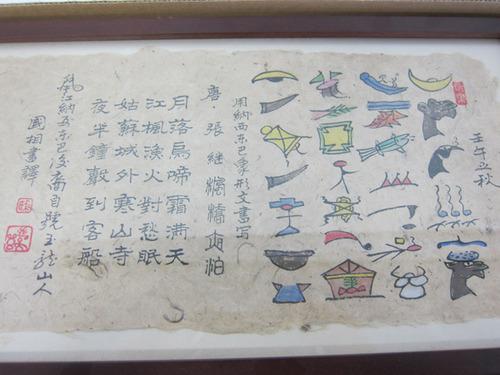 壬午立秋
用納西东巴象形文書写
唐·張継 楓橋夜泊
月落烏啼霜满天
江楓漁火對愁眠
姑蘇城外寒山寺
夜半鐘聲到客船
江納西东巴後裔自號玉龙山人
國相書譯